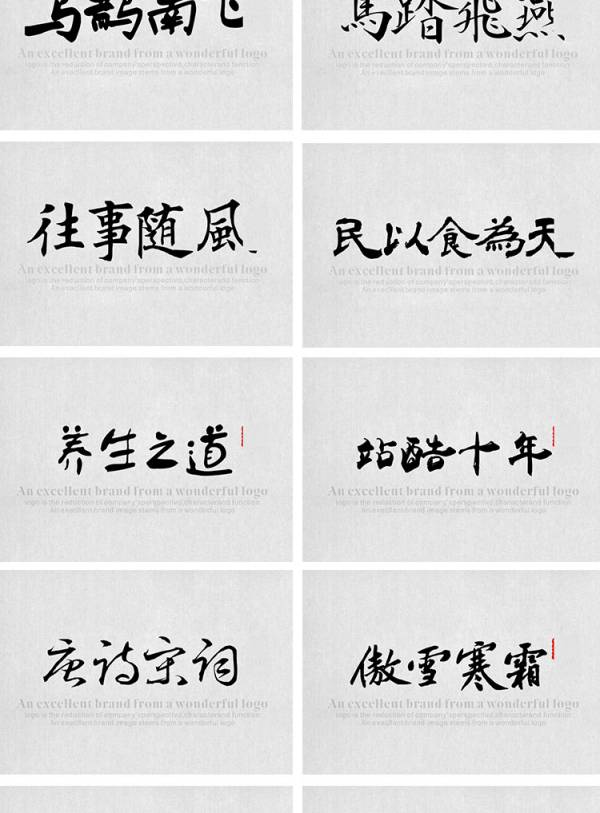 乌鹊南飞
An excellent brand from a wonderful logo
logo is the reduction of company'sperspective,characterand function
An excellent brand image stems from a wonderful logo
馬踏飛燕
An excellent brand from a wonderful logo
logo is the reduction of company'sperspective,characterand function
An excellent brand image stems from a wonderful logo
往事随風
An excellent brand from a wonderful logo
logo is the reduction of company'sperspective,characterand function
An excellent brand image stems from a wonderful logo
民以食為天
An excellent brand from a wonderful logo
logo is the reduction of company'sperspective,characterand function
An excellent brand image stems from a wonderful logo
养生之道
An excellent brand from a wonderful logo
logo is the reduction of company'sperspective,characterand function
An excellent brand image stems from a wonderful logo
站酷十年
An excellent brand from a wonderful logo
logo is the reduction of company'sperspective,characterand function
An excellent brand image stems from a wonderful logo
唐诗宋词
An excellent brand from a wonderful logo
logo is the reduction of company'sperspective,characterand function
An excellent brand image stems from a wonderful logo
傲雪寒霜
An excellent brand from a wonderful logo
logo is the reduction of company'sperspective,characterand function
An excellent brand image stems from a wonderful logo